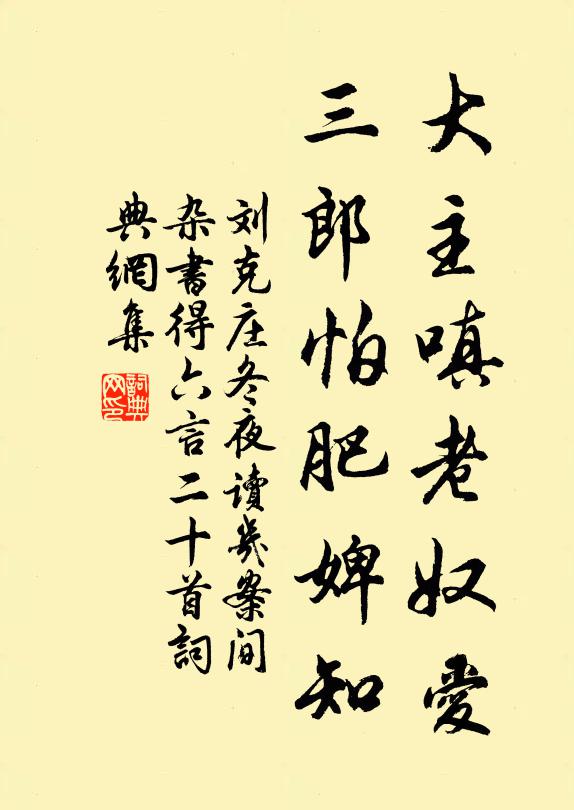 大主嗔老奴愛
三郎怕肥婢知
刘克庄冬夜讀幾案间
杂書得六言二十首詞
典網集
詞典
网印